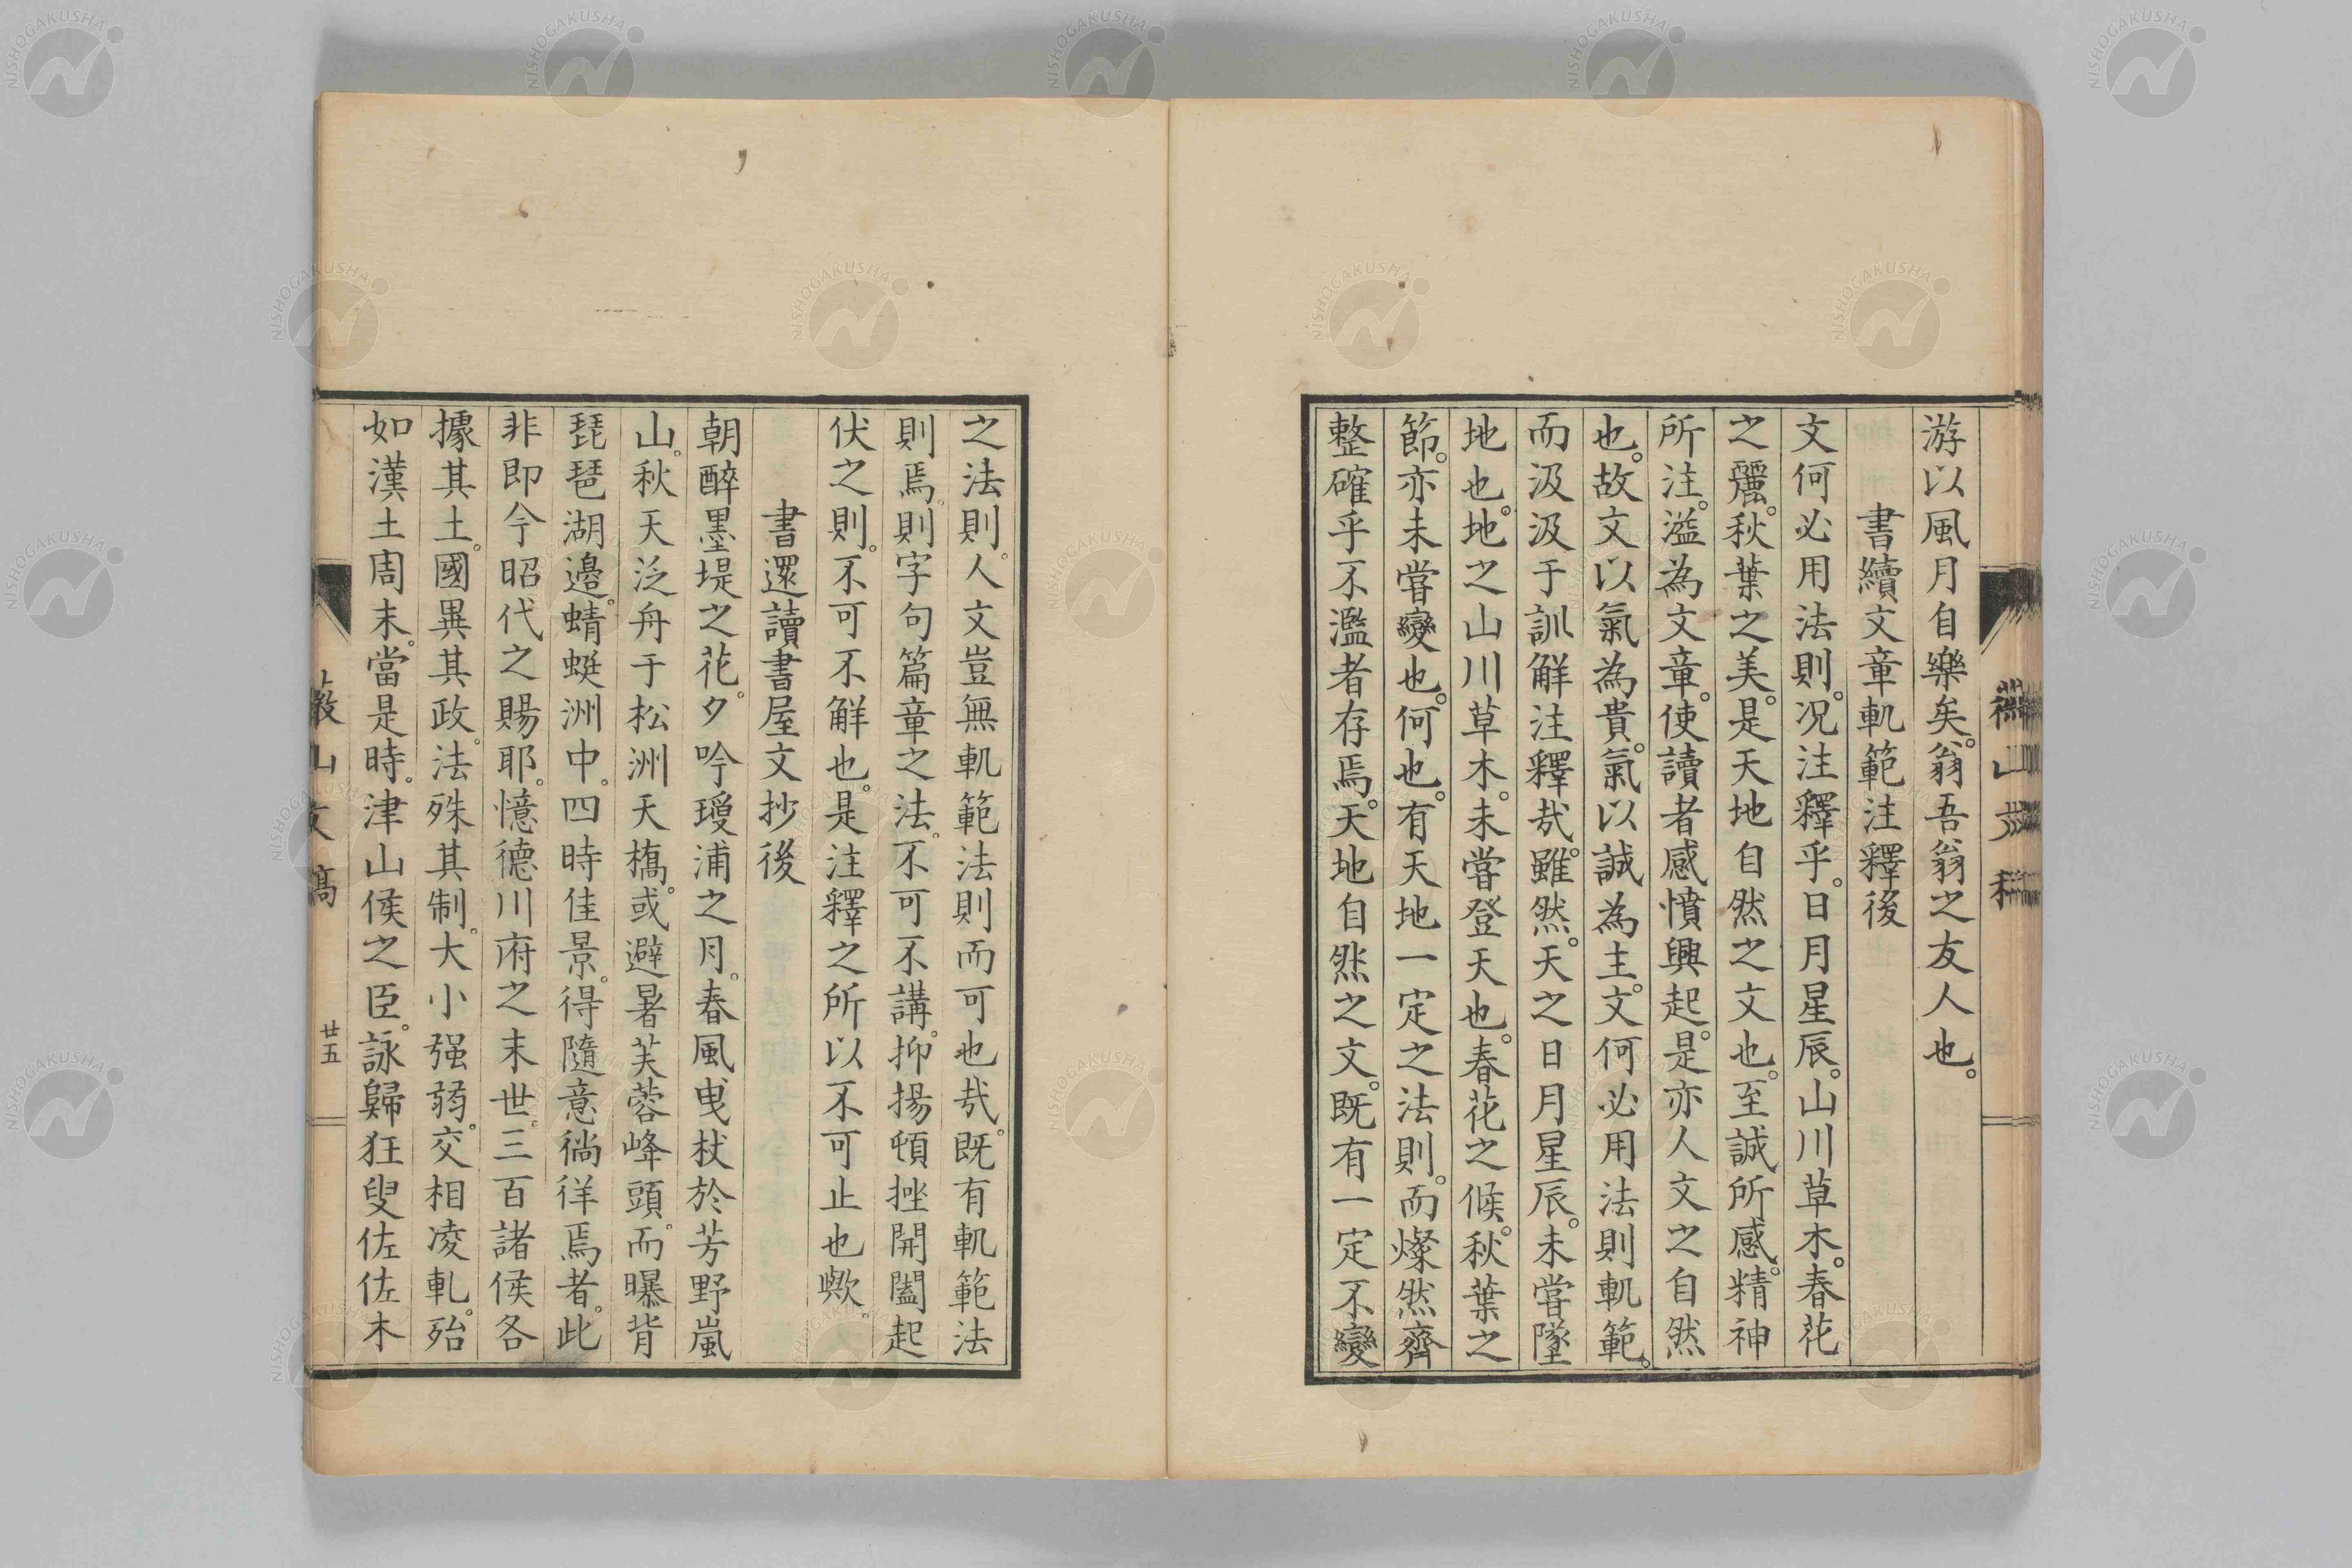 游以風月自樂矣。翁吾翁之友人也。
書續文章軌範注釋後
文何必用法則。况注釋乎。日月星辰。山川草木。春花
之麗。秋葉之美。是天地自然之文也。至誠所感。精神
所注。溢為文章。使讀者感憤興起。是亦人文之自然
也。故文以氣為貴。氣以誠為主。文何必用法則軌範。
而汲汲于訓解注釋哉。雖然。天之日月星辰。未嘗墜
地也。地之山川草木。未嘗登天也。春花之候。秋葉之
節。亦未嘗變也。何也。有天地一定之法則。而燦然齊
整確乎不濫者存焉。天地自然之文。既有一定不變
之法則。人文豈無軌範法則而可也哉。既有軌範法
則焉。則字句篇章之法。不可不講。抑揚頓挫開闔起
伏之則。不可不解也。是注釋之所以不可止也歟。
書還讀書屋文抄後
朝醉墨堤之花。夕吟璦浦之月。春風曳杖於芳野嵐
山。秋天泛舟于松洲天橋。或避暑芙蓉峰頭。而曝背
琵琶湖邉。蜻蜓洲中。四時佳景。得隨意徜徉焉者。此
非即今昭代之賜耶。憶德川府之末世。三百諸侯各
據其土。國異其政。法殊其制。大小强弱。交相凌軋。殆
如漢土周末。當是時。津山侯之臣。詠歸狂叟佐佐木
巌山文稿
廿五
NISHOGAKUSHA